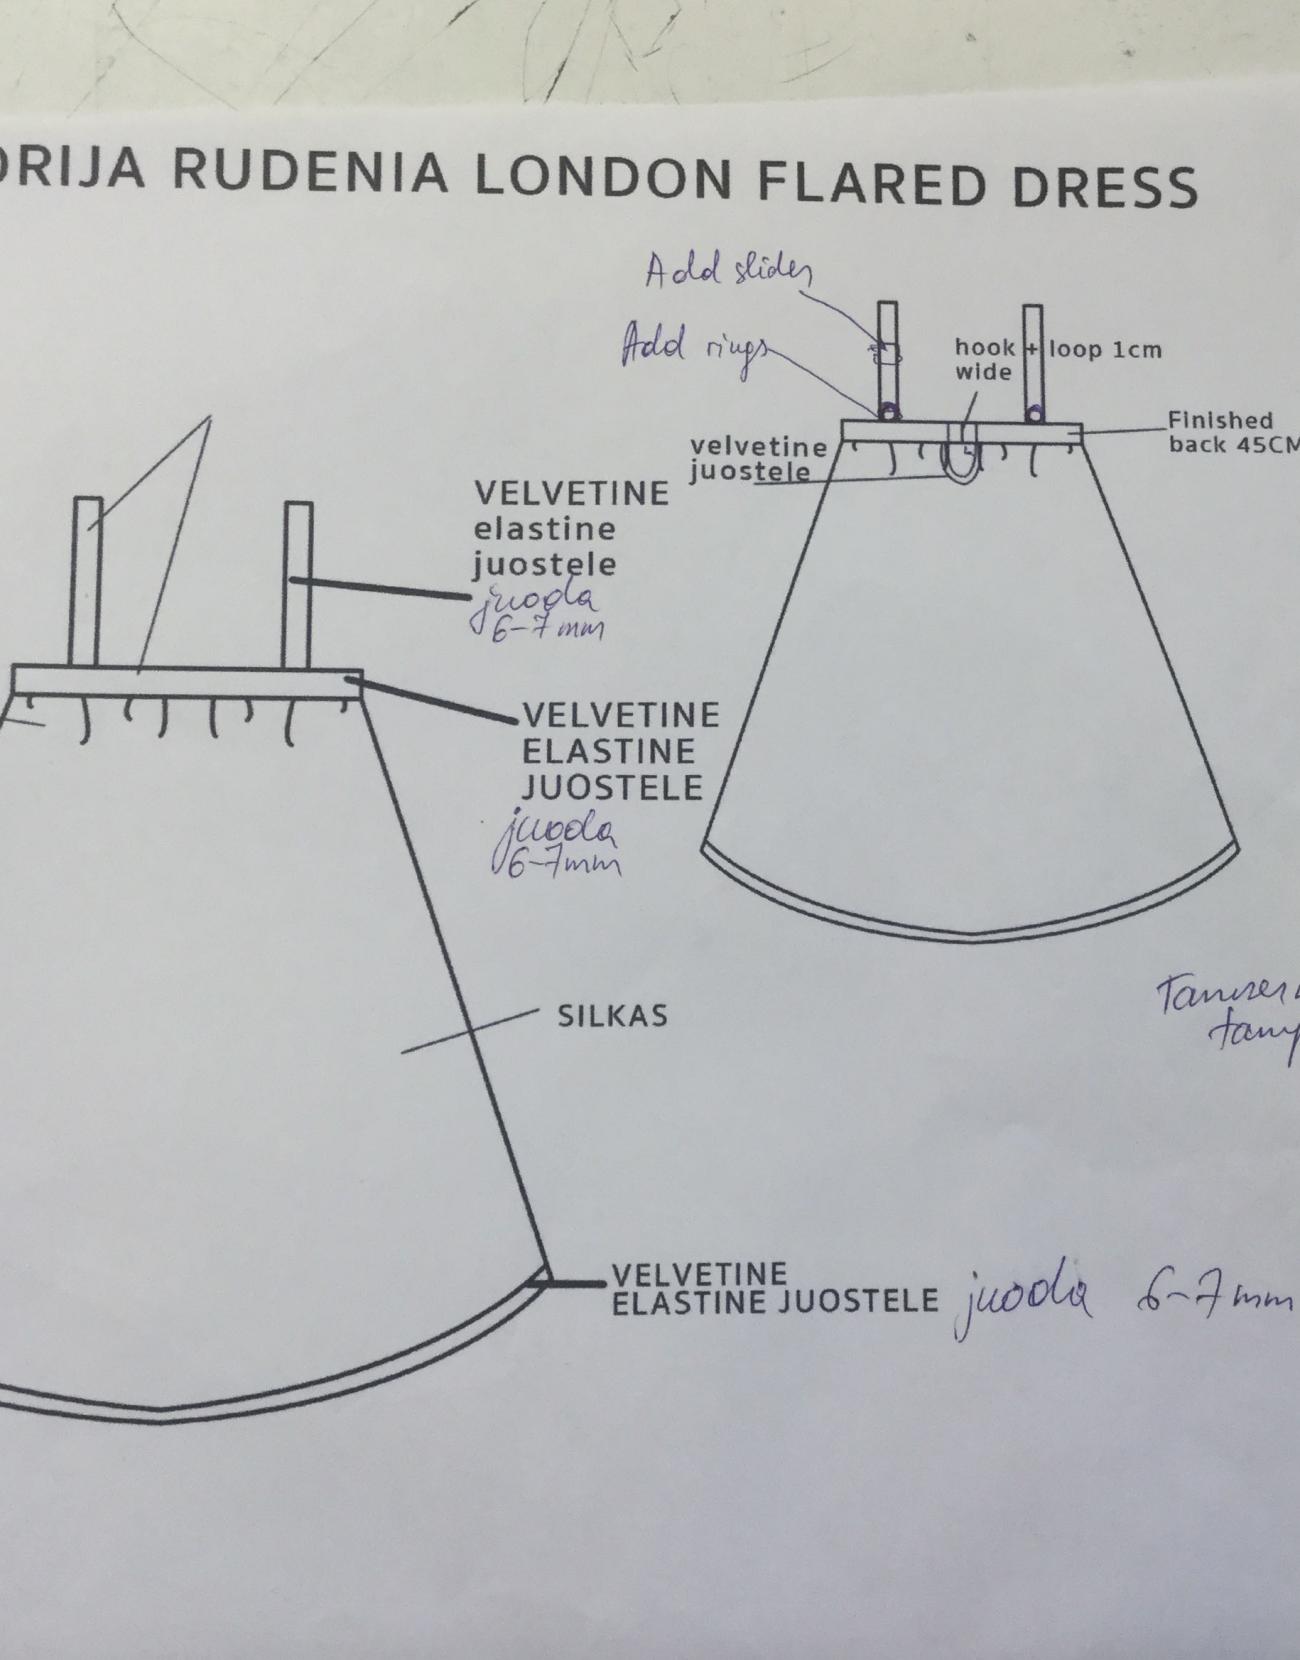 ORIJA RUDENIA LONDON FLARED DRESS
Add slider
Add rings
hook + loop 1cm
wide
Finished
back 45CM
velvetine
juostele
VELVETINE
elastine
juostele
juoda
6-7 mm
VELVETINE
ELASTINE
JUOSTELE
juoda
6-7mm
SILKAS
VELVETINE
ELASTINE JUOSTELE juoda 6-7mm